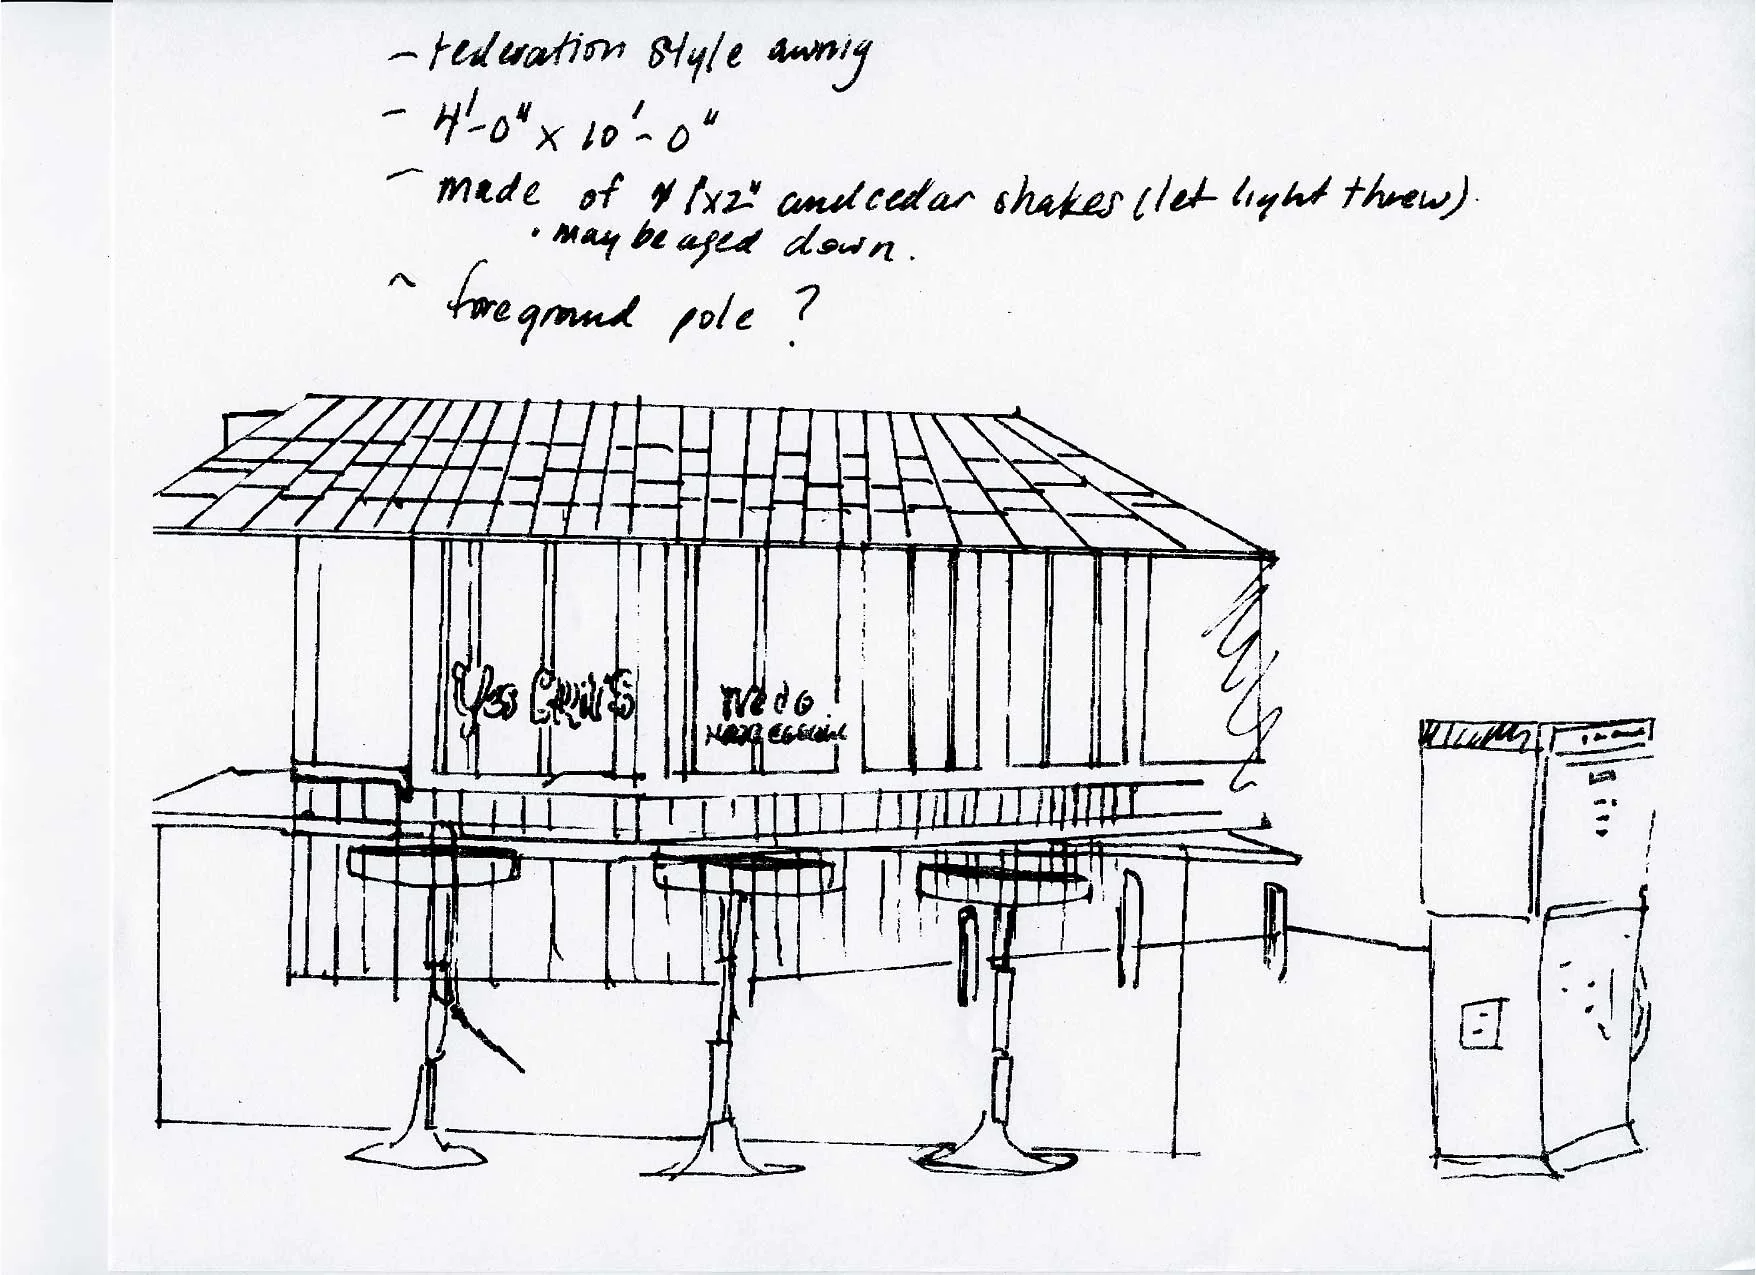 - Federation Style awnig
- 4'-0" x 10'-0"
- made of 1"x2" and cedar shakes (let light threw).
• may be aged down.
- foreground pole ?